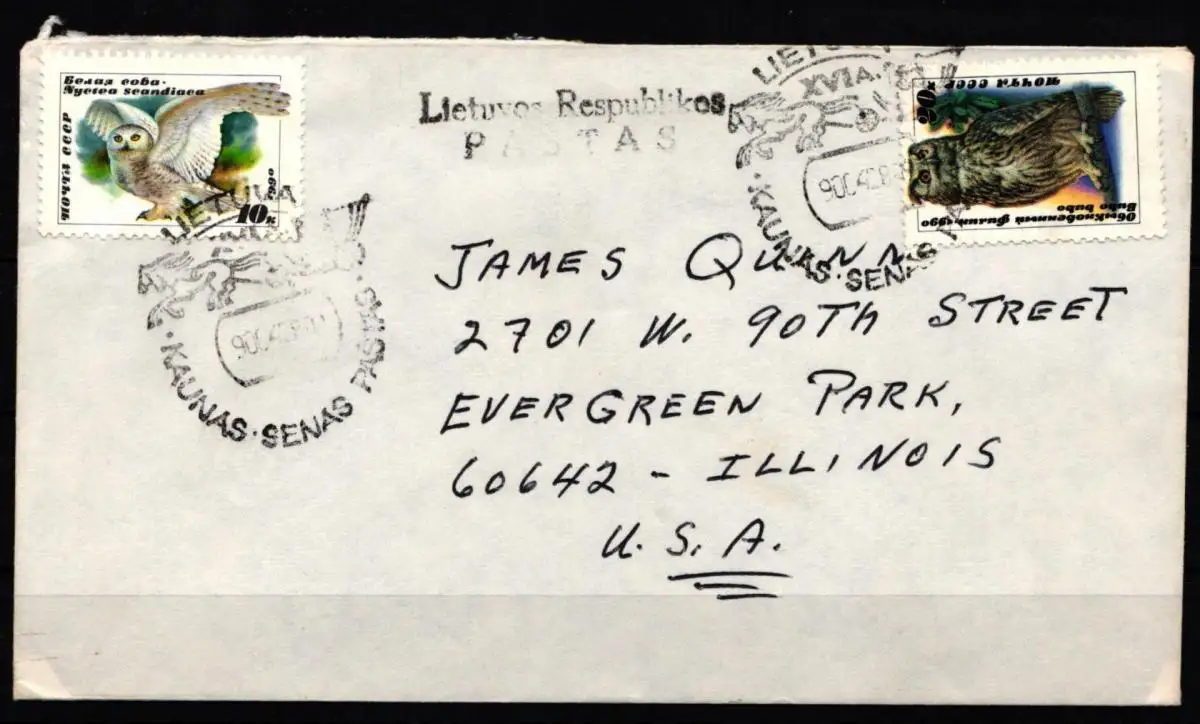 Белая сова·
Nyctea scandiaca
почта СССР
1990
10к
Lietuvos Respublikos
PASTAS
XVIA.
KAUNAS·SENAS
почта СССР
20к
Обыкновенный филин·1990
Bubo bubo
LIETUVA
·KAUNAS·SENAS PAŠTAS·
JAMES QUINN
2701 W. 90TH STREET
EVERGREEN PARK,
60642 - ILLINOIS
U.S.A.